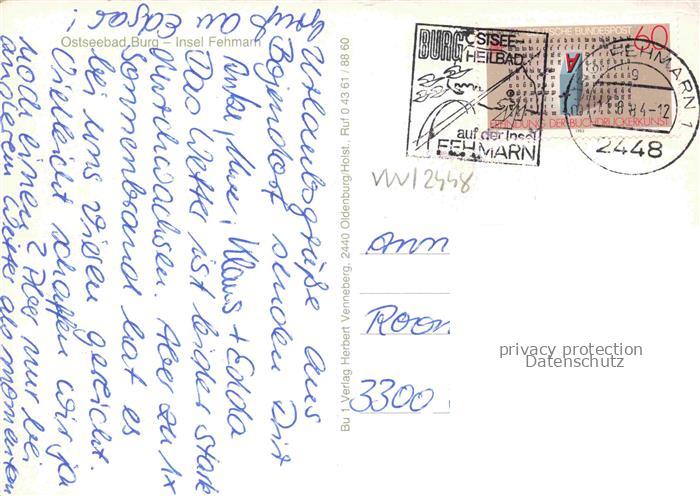 Ostseebad Burg – Insel Fehmarn
Urlaubsgrüße aus
Bojendorf senden Dir
Anke, Klaus + Edda
Das Wetter ist leider stark
durchwachsen. Aber zu 1x
Sonnenbrand hat es
bei uns diesen gereicht.
Vielleicht schaffen wir ja
noch einen? Aber nur bei
anderem Wetter als momentan
Gruß an Edgar!
Bu 1 Verlag Herbert Venneberg, 2440 Oldenburg/Holst., Ruf 0 43 61 / 88 60
BURG OSTSEE
HEILBAD
auf der Insel
FEHMARN
DEUTSCHE BUNDESPOST 60
ERFINDUNG DER BUCHDRUCKERKUNST
1983
FEHMARN 1
84-12
2448
VVV/2448
Ann
Roon
3300
privacy protection
Datenschutz